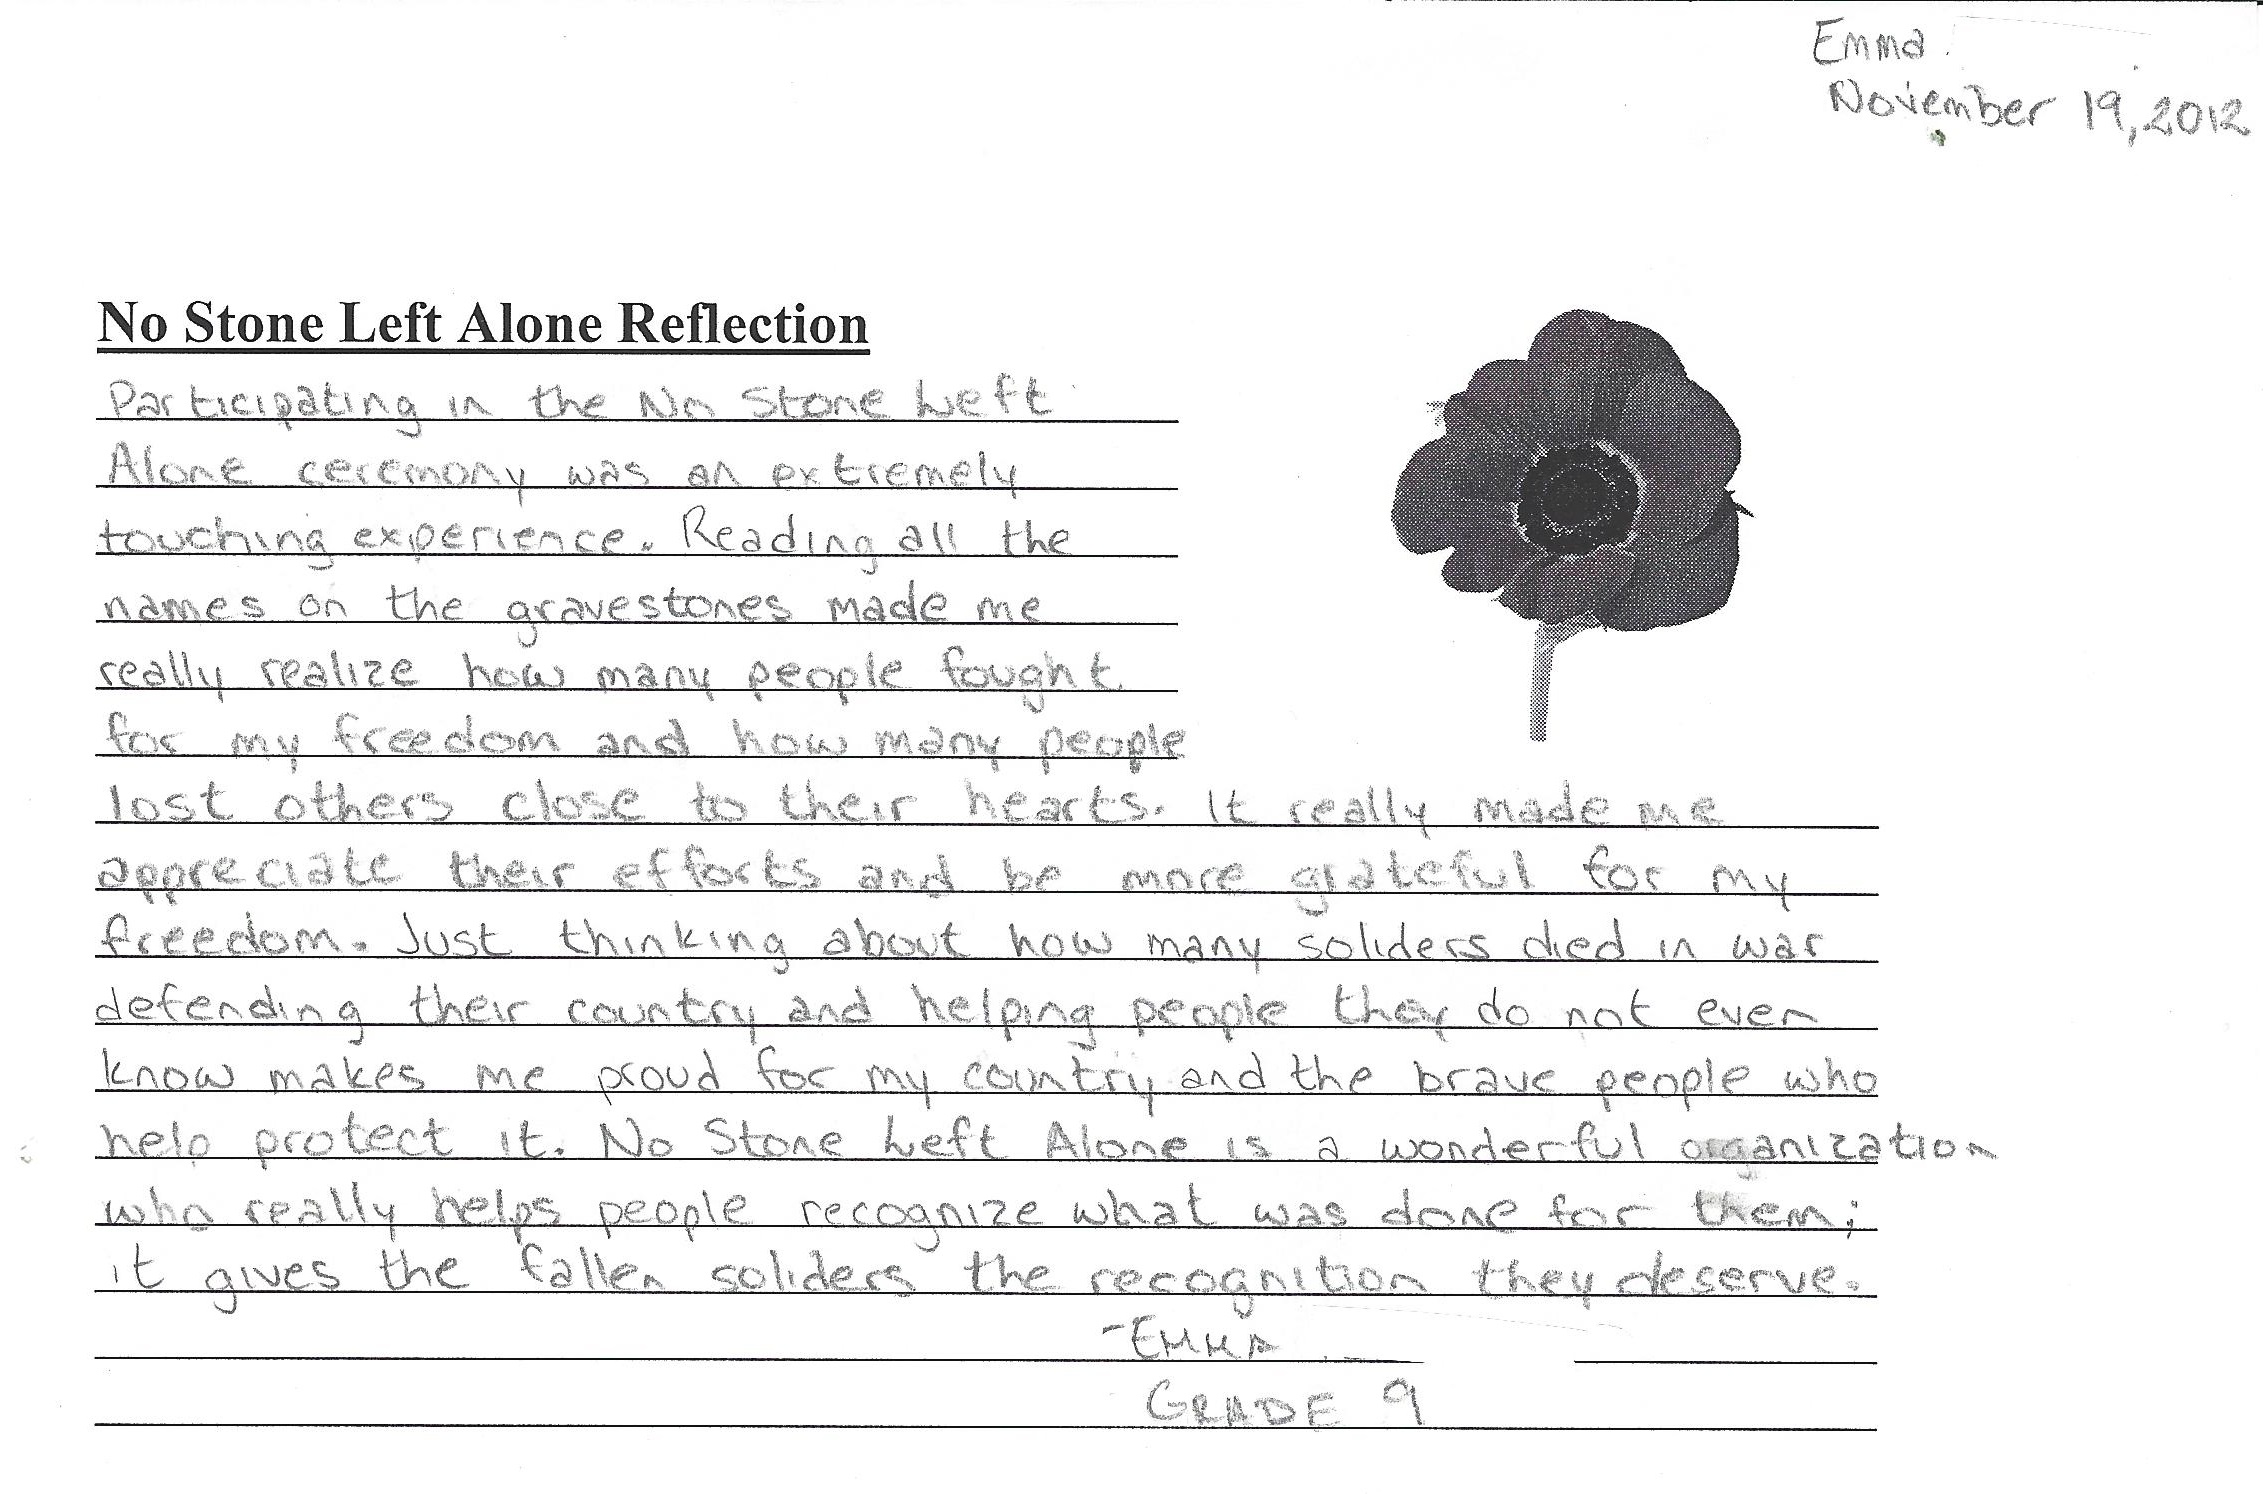 Emma
November 19, 2012
No Stone Left Alone Reflection
Participating in the No Stone Left
Alone ceremony was an extremely
touching experience. Reading all the
names on the gravestones made me
really realize how many people fought
for my freedom and how many people
lost others close to their hearts. It really made me
appreciate their efforts and be more grateful for my
freedom. Just thinking about how many soliders died in war
defending their country and helping people they do not even
know makes me proud for my country and the brave people who
help protect it. No Stone Left Alone is a wonderful organization
who really helps people recognize what was done for them;
it gives the fallen soliders the recognition they deserve.
-EMMA
GRADE 9